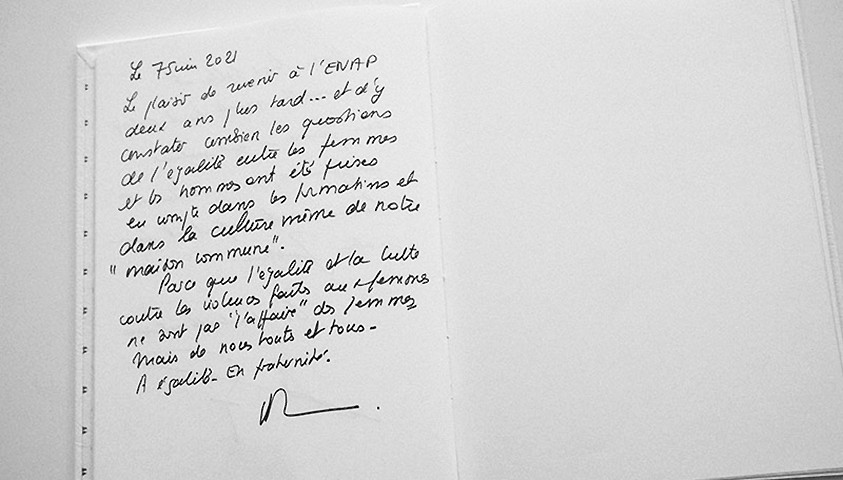 Le 7 Juin 2021
Le plaisir de revenir à l'ENAP
deux ans plus tard... et d'y
constater combien les questions
de l'égalité entre les femmes
et les hommes ont été prises
en compte dans les formations et
dans la culture même de notre
"maison commune".
Parce que l'égalité et la lutte
contre les violences faites aux femmes
ne sont pas "l'affaire" des femmes
mais de nous toutes et tous -
A égalité - En fraternité.